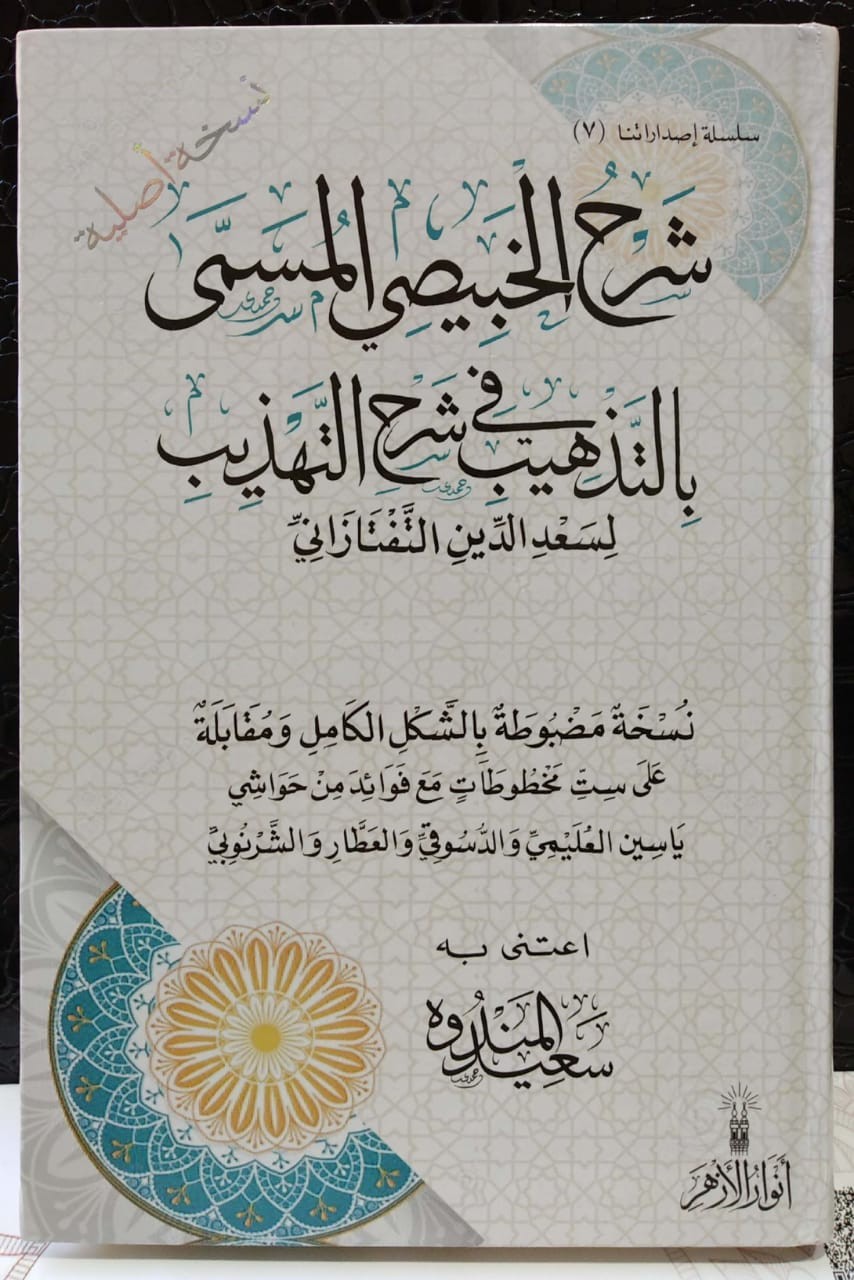 نسخة أصلية
سلسلة إصداراتنا (٧)
شَرْحُ الخَبِيصِي المُسَمَّى
بِالتَّذْهِيبِ فِي شَرْحِ التَّهْذِيبِ
لِسَعْدِ الدِّينِ التَّفْتَازَانِيِّ
نُسْخَةٌ مَضْبُوطَةٌ بِالشَّكْلِ الكَامِلِ وَمُقَابَلَةٌ
عَلَى سِتِّ مَخْطُوطَاتٍ مَعَ فَوَائِدَ مِنْ حَوَاشِي
يَاسِين العُلَيْمِيِّ وَالدُّسُوقِيِّ وَالعَطَّارِ وَالشَّرْنُوبِيِّ
اعتنى به
سَعِيد المَنْدُوه
أَنْوَارُ الأَزْهَرِ